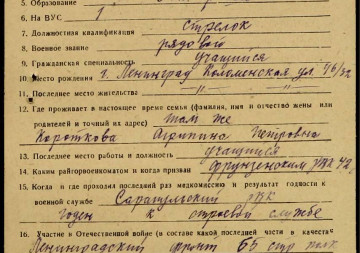 5. Образование
6. На ВУС 1
7. Должностная квалификация стрелок
8. Военное звание рядовой
9. Гражданская специальность учащийся
10. Место рождения г. Ленинград Коломенская ул.
11. Последнее место жительства — " — — " —
12. Где проживает в настоящее время семья (фамилия, имя и отчество жены или
родителей и точный их адрес) там же
Короткова Агрипина Петровна
13. Последнее место работы и должность учащийся
14. Каким райгорвоенкоматом и когда призван Фрунзенским РВК 42
15. Когда и где проходил последний раз медкомиссию и результат годности к
военной службе Сарапульский РВК
годен к строевой службе
16. Участие в Отечественной войне (в составе какой последней части в качестве
Ленинградский фронт 65 стр полк